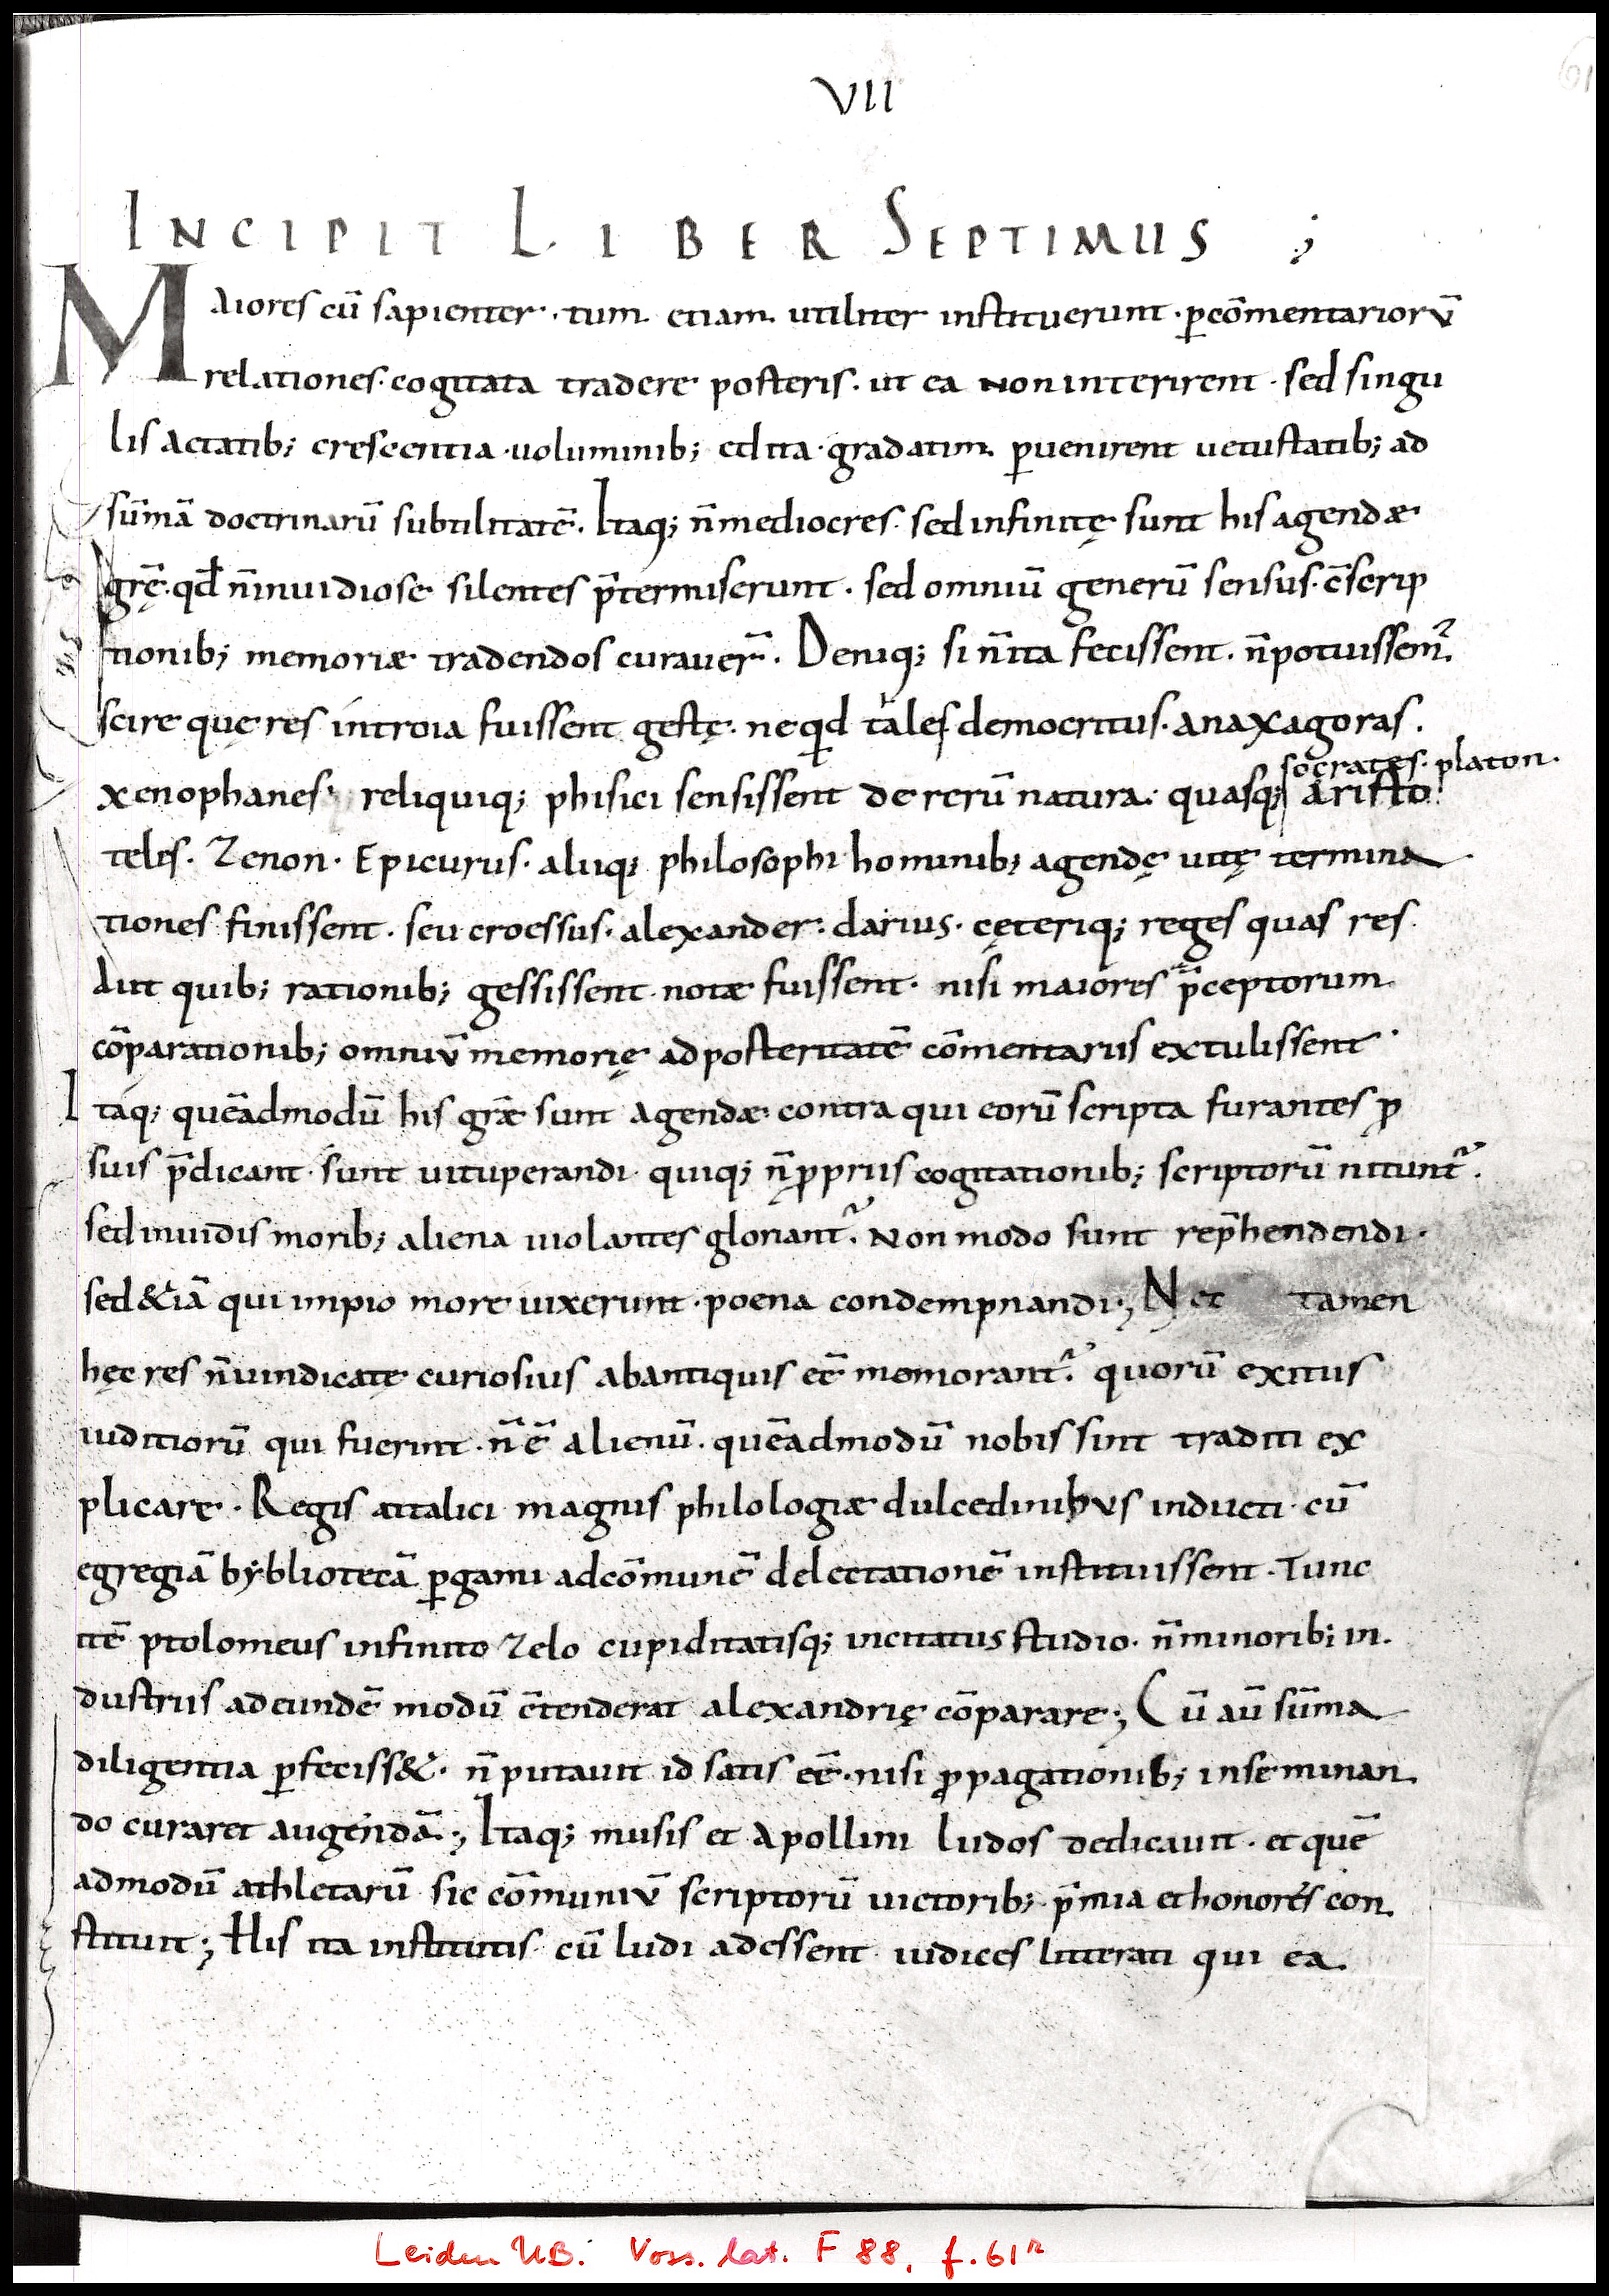 VII
61
INCIPIT LIBER SEPTIMUS ;
Maiores cū sapienter · tum etiam utiliter instituerunt · ꝑ cōmentariorū
relationes · cogitata tradere posteris · ut ea non interirent · sed singu
lis aetatib; crescentia · uoluminib; edita · gradatim ꝑuenirent uetustatib; ad
sūmā doctrinarū subtilitatē . Itaq; n̄ mediocres · sed infinitę sunt his agendae
grę̄ · qd̄ n̄ inuidiose silentes p̄termiserunt . sed omniū generū sensus · c̄scrip
tionib; memoriae tradendos curauer̄ . Deniq; si n̄ ita fecissent . n̄ potuissem᷑
scire quę res in troia fuissent gestę · ne qid tales democritus · anaxagoras .
socrates · platon
xenophanes · reliquiq; phisici sensissent de rerū natura · quasq; aristo
teles · Zenon · Epicurus · aliiq; philosophi hominib; agendę uitę termina
tiones finissent · seu croessus · alexander · darius · cęteriq; reges quas res
aut quib; rationib; gessissent · notae fuissent · nisi maiores p̄ceptorum
cōparationib; omniū memorię ad posteritatē cōmentariis extulissent ·
Itaq; quēadmodū his grāe sunt agendae · contra qui eorū scripta furantes ꝓ
suis p̄dicant · sunt uituperandi · quiq; n̄ ꝓpriis cogitationib; scriptorū nitunt᷑ .
sed inuidis morib; aliena uiolantes gloriant᷑ . Non modo sunt rep̄hendendi ·
sed &iā qui impio more uixerunt · poena condempnandi ·; Nęc tamen
hęc res n̄ uindicatę curiosius ab antiquis eē memorant᷑ . quorū exitus
iuditiorū qui fuerint · n̄ ē alienū · quēadmodū nobis sint traditi ex
plicare · Regis attalici magnis philologiae dulcedinibus inducti · cū
egregiā bybliotecā ꝑgami ad cōmunē delectationē instituissent · Tunc
itē ptolomeus infinito zelo cupiditatisq; incitatus studio · n̄ minorib; in
dustriis ad eundē modū c̄tenderat alexandrię cōparare ; Cū aū sūma
diligentia ꝑfeciss& · n̄ putauit id satis eē · nisi ꝓpagationib; inseminan
do curaret augendā ·; Itaq; musis et apollini ludos dedicauit · et quē
admodū athletarū sic cōmuniū scriptorū uictorib; · p̄mia et honores con
stituit ; His ita institutis · cū ludi adessent · iudices litterati qui ea
Leiden UB. Voss. lat. F 88, f. 61ʳ